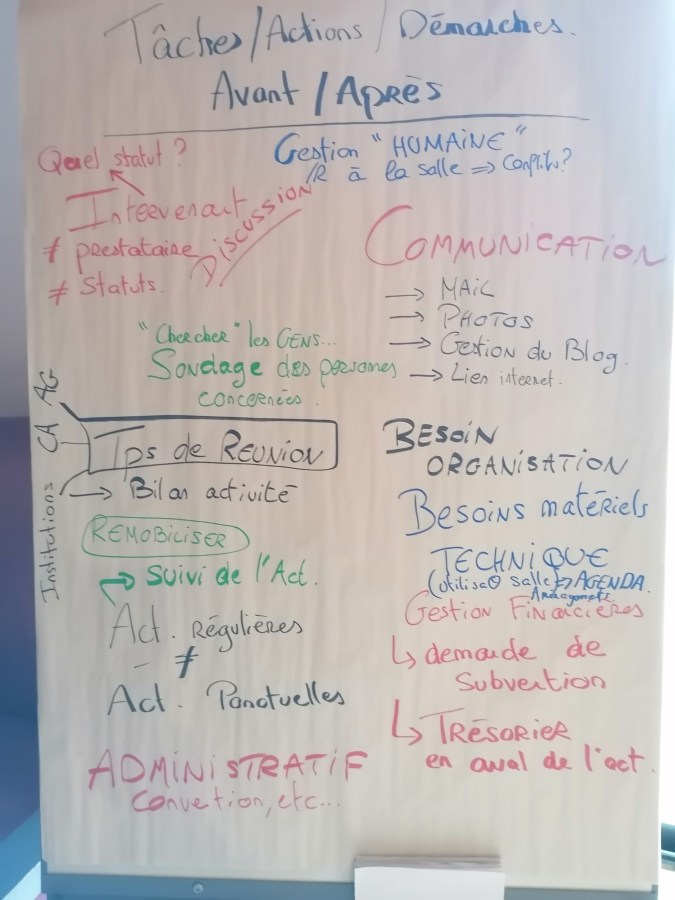 Tâches/Actions/Démarches.
Avant/Après
Quel statut ?
Intervenant
≠ prestataire
≠ Statuts.
Discussion
Gestion "HUMAINE"
/R à la salle ⇒ Conflits?
COMMUNICATION
→ MAIL
→ PHOTOS
→ Gestion du Blog.
→ Lien internet.
"Chercher" les GENS...
Sondage des personnes
concernées.
AG
CA
Institutions
Tps de REUNION
→ Bilan activité
REMOBILISER
→ Suivi de l'Act.
Act. Régulières
≠
Act. Ponctuelles
ADMINISTRATIF
Convention, etc...
BESOIN
ORGANISATION
Besoins matériels
TECHNIQUE
(utilis° salle ⇒ AGENDA.
Gestion Financières
↳ demande de
Subvention
↳ TRÉSORIER
en aval de l'act.